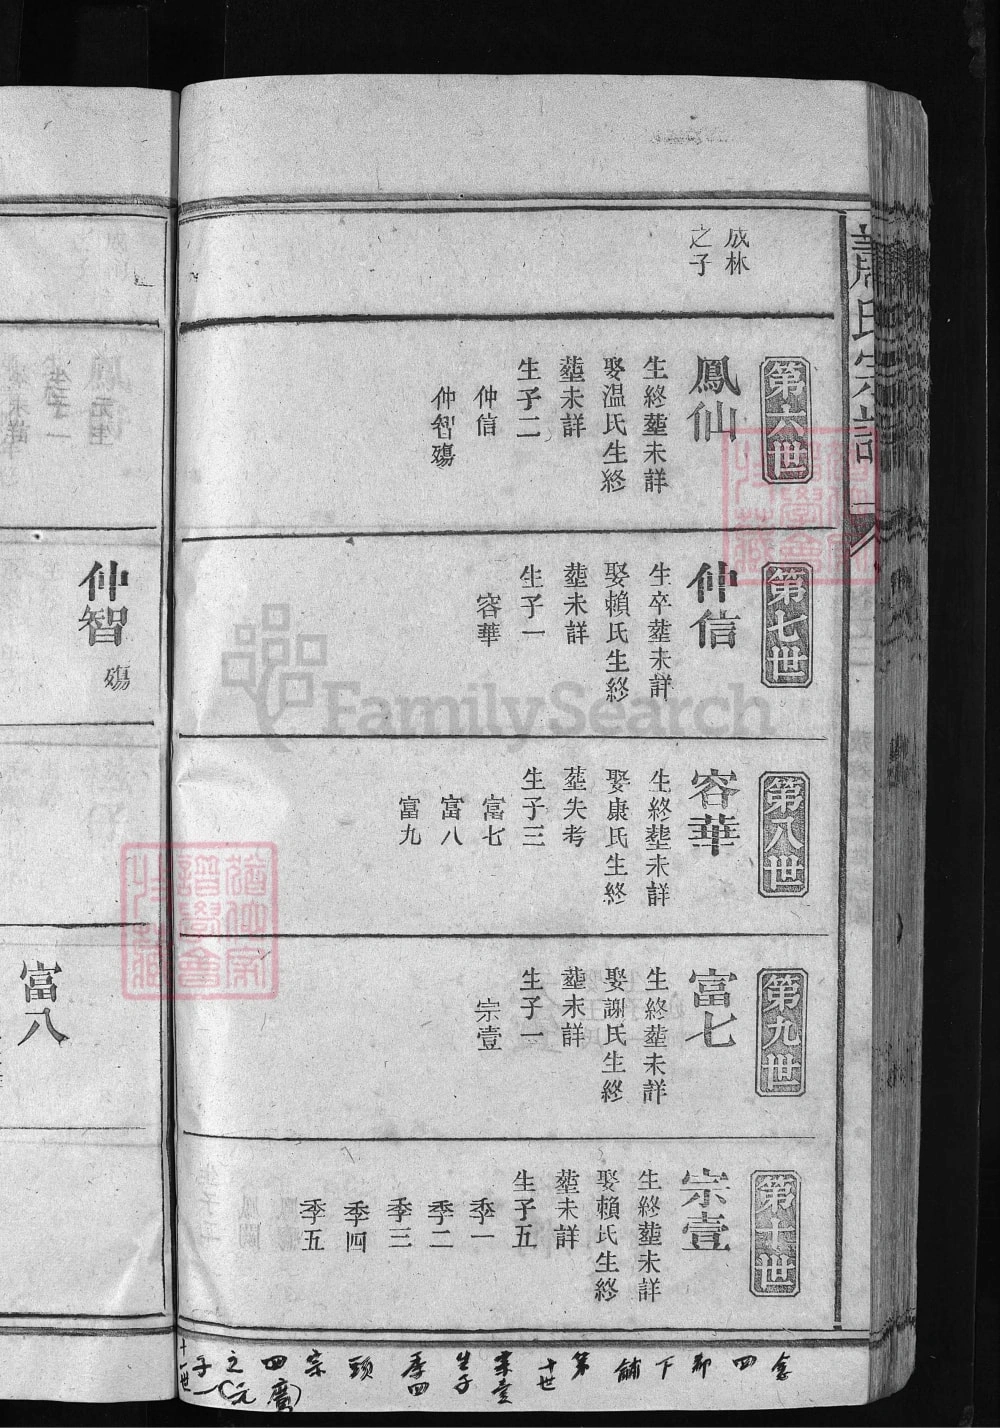 蕭氏宗譜
成林
之子
第六世
鳳仙
生終塟未詳
娶温氏生終
塟未詳
生子二
仲信
仲智殤
第七世
仲信
生卒塟未詳
娶賴氏生終
塟未詳
生子一
容華
第八世
容華
生終塟未詳
娶康氏生終
塟失考
生子三
富七
富八
富九
第九世
富七
生終塟未詳
娶謝氏生終
塟未詳
生子一
宗壹
第十世
宗壹
生終塟未詳
娶賴氏生終
塟未詳
生子五
季一
季二
季三
季四
季五
仲智殤
富八
FamilySearch